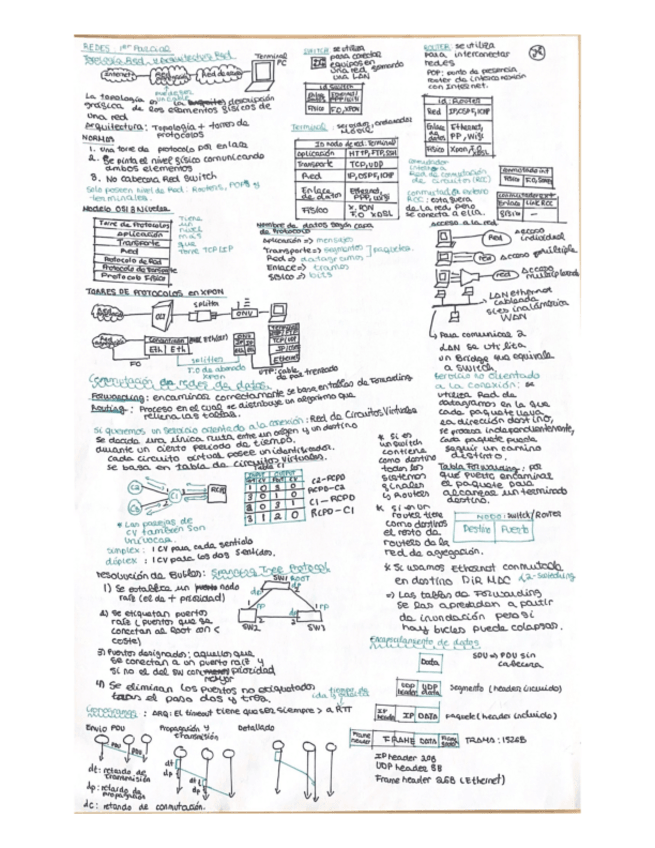 REDES: 1er Parcial
Topología Red y Arquitectura Red
Internet
Red de acceso
Terminal
PC
La topología es la descripción
gráfica de los elementos físicos de
una red
arquitectura: Topología + torres de
protocolos
NORMAS
1. una torre de protocolo por enlace
2. Se pinta el nivel físico comunicando
ambos elementos
3. No cabecera Red Switch
Solo poseen nivel de Red: Routers, POP's y
terminales.
Modelo OSI 3 Niveles
Torre de Protocolos
aplicación
Transporte
Red
Protocolo de Red
Protocolo de Transporte
Protocolo Físico
Tiene
un
nivel
más
que
Torre TCP/IP
SWITCH: se utiliza
para conectar
equipos en
una red formando
una LAN
id switch
Físico
F.O, XPON
Terminal: servidores, ordenadores
móvil
id Nodo de red: Terminal
aplicación
HTTP, FTP, SSH
Transporte
TCP, UDP
Red
IP, OSPF, ICMP
Enlace
de datos
Ethernet,
PPP, WiFi
Físico
XPON
F.O XDSL
Nombre de datos según capa
de Protocolo
Aplicación => mensajes
Transporte => segmentos
paquetes
Red => datagramas
Enlace => tramas
Físico => bits
ROUTER: se utiliza
para interconectar
redes
POP: punto de presencia
router de interconexión
con Internet.
id: Router
Red
IP, OSPF, ICMP
Enlace
de
datos
Ethernet,
PP, WiFi
Físico
Xpon, F.O,
XDSL
conmutador
interno:
Red de conmutación
de circuitos (RCC)
conmutador int
Físico
F.O, XDSL
conmutador externo
RCC: está fuera
de la red pero
se conecta a ella.
conmutador ext
Enlace
Físico
Acceso a la red
Red
Acceso
individual
Red
Acceso múltiple
red
Acceso
multiplexado
LAN ethernet
cableada
si es inalámbrica
WLAN
Para comunicar 2
LAN se utiliza
un Bridge que equivale
a SWITCH.
TORRES DE PROTOCOLOS en XPON
Splitter
OLT
ONU
Conmutación
Eth
Eth
F.O
splitter
F.O de abonado
xpon
TCP/UDP
Ethernet
UTP: cable
de par trenzado
Conmutación de redes de datos
Forwarding: encaminar correctamente se base en tablas de Forwarding
Routing: Proceso en el cual se distribuye un algoritmo que
rellena las tablas.
Si queremos un servicio orientado a la conexión: Red de Circuitos Virtuales
se decide una única ruta entre un origen y un destino
durante un cierto periodo de tiempo.
cada circuito virtual posee un identificador.
se basa en Tabla de circuitos virtuales.
Tabla C1
C2
C1
C3
RCPD
1 0 3 0
3 0 1 0
2 0 3 1
3 1 2 0
C2-RCPD
RCPD-C2
C1-RCPD
RCPD-C1
* Las parejas de
CV también son
unívocas.
simplex: 1 CV para cada sentido
dúplex: 1 CV para los dos sentidos.
* Si es
un switch
contiene
como destino
todos los
sistemas
finales
y Routers
* Si es un
router tiene
como destinos
el resto de
routers de la
red de agregación.
Servicio no orientado
a la conexión: se
utiliza Red de
datagramas en la que
cada paquete lleva
la dirección destino,
se procesa independientemente,
cada paquete puede
seguir un camino
distinto.
Tabla Forwarding: por
qué puerto encaminar
el paquete para
alcanzar un terminado
destino.
NODO: switch/Router
Destino
Puerto
* Si usamos ethernet conmutada
en destino DIR MAC
=> Las tablas de Forwarding
se las aprenden a partir
de inundación pero si
hay bucles puede colapsar.
resolución de Bucles: Spanning Tree Protocol
1) Se establece un nodo
raíz (id de + prioridad)
2) Se etiquetan puertos
raíz (puertos que se
conectan al Root con <
coste)
3) Puertos designados: aquellos que
se conectan a un puerto raíz y
si no el del SW con prioridad
mayor
4) Se eliminan los puertos no etiquetados
tras el paso dos y tres.
SW1 ROOT
dp
dp
rp
rp
dp
SW2
SW3
Cronogramas: ARQ: El timeout tiene que ser siempre > a RTT
Envío PDU
Propagación y
transmisión
Detallado
PDU
PDU
dt
dp
dt
dp
dt: retardo de
transmisión
dp: retardo de
propagación
dc: retardo de conmutación.
Encapsulamiento de datos
Data
SDU => PDU sin
cabecera
UDP
header
UDP
data
Segmento (header incluido)
IP
header
IP DATA
paquete (header incluido)
Frame
header
FRAME DATA
TRAMA: 1526B
IP header 20B
UDP header 8B
Frame header 26B (Ethernet)